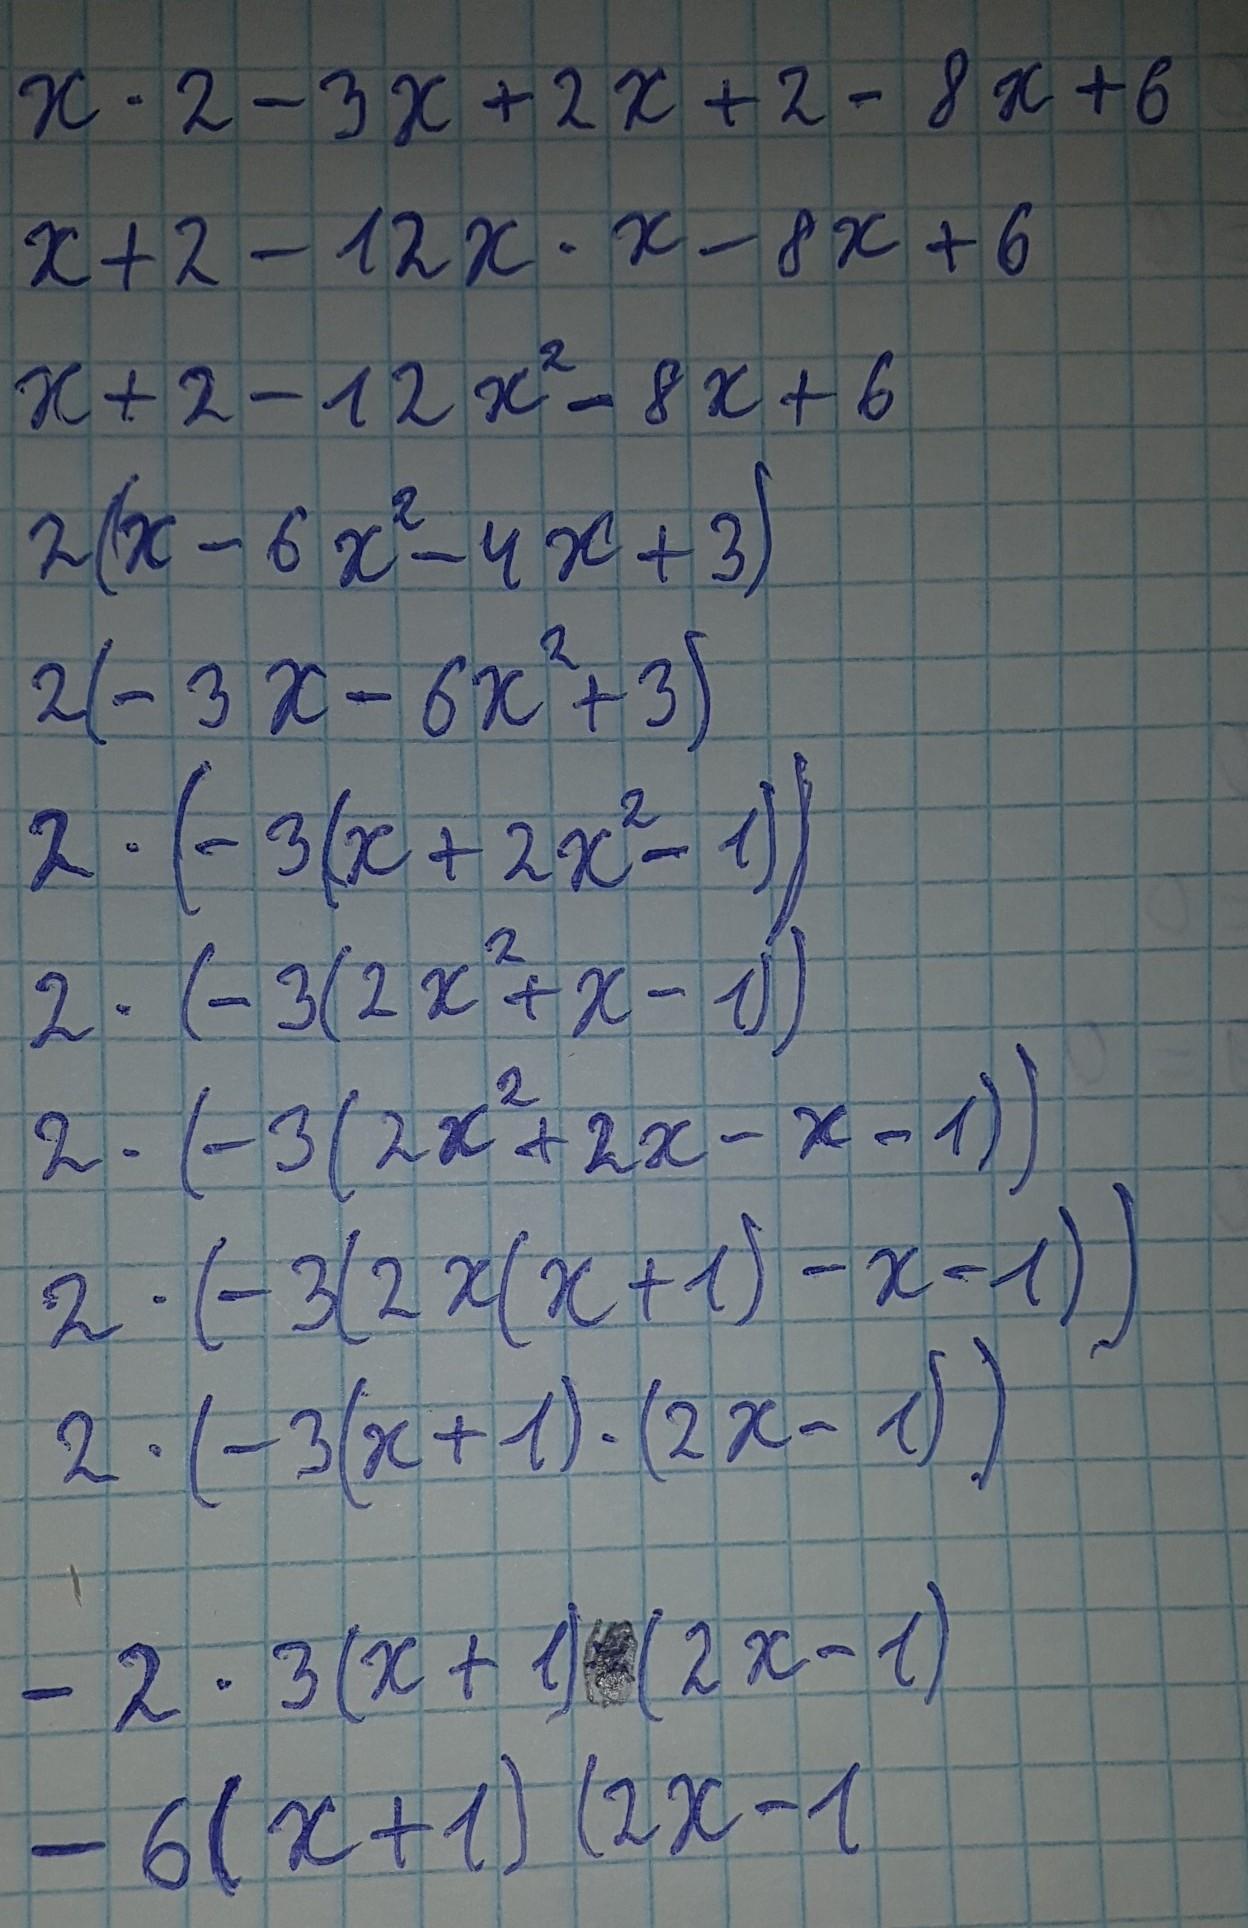 x · 2 - 3x + 2x + 2 - 8x + 6
x + 2 - 12x · x - 8x + 6
x + 2 - 12x² - 8x + 6
2(x - 6x² - 4x + 3)
2(- 3x - 6x² + 3)
2 · (- 3(x + 2x² - 1))
2 · (- 3(2x² + x - 1))
2 · (- 3(2x² + 2x - x - 1))
2 · (- 3(2x(x + 1) - x - 1))
2 · (- 3(x + 1) · (2x - 1))
- 2 · 3(x + 1) (2x - 1)
- 6(x + 1) (2x - 1